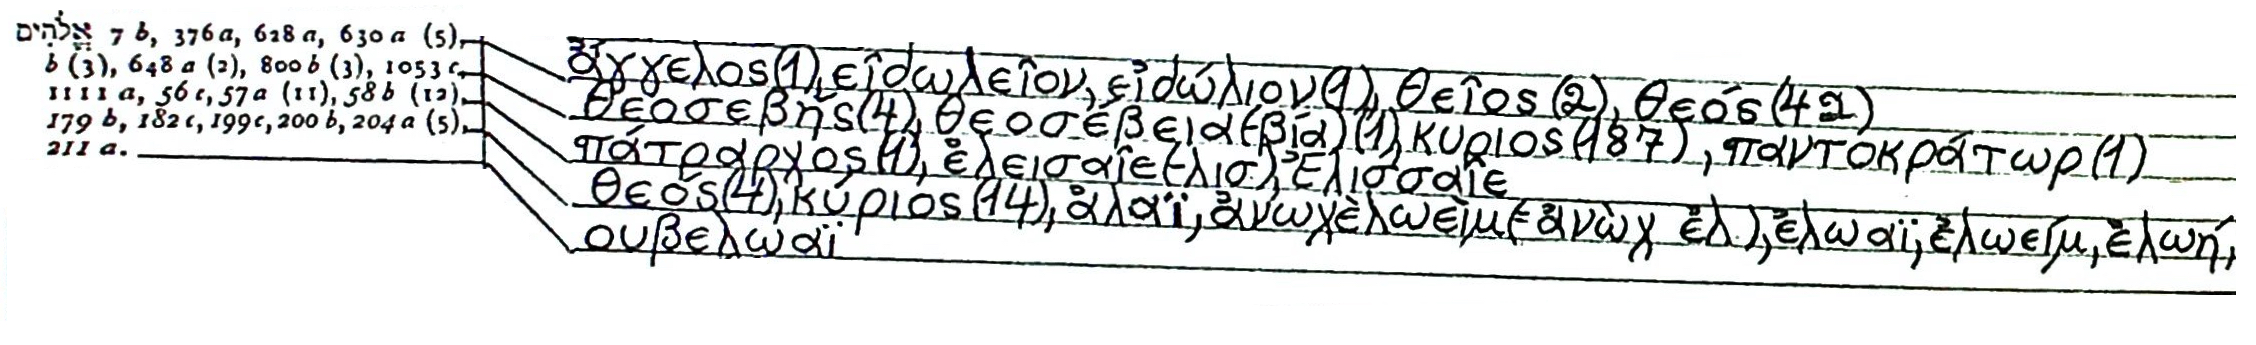 אֱלֹהִים 7 b, 376 a, 628 a, 630 a (5),
b (3), 648 a (2), 800 b (3), 1053 c,
1111 a, 56 c, 57 a (11), 58 b (12),
179 b, 182 c, 199 c, 200 b, 204 a (5),
211 a.
ἄγγελος(1), εἰδωλεῖον, εἰδώλιον(1), θεῖος(2), θεός(42)
θεοσεβής(4), θεοσέβεια(-βία)(1), κύριος(187), παντοκράτωρ(1)
πάτραρχος(1), ἐλεισαῖε(-λισ), Ἐλισσαῖε
θεός(4), κύριος(14), ἀλαΐ, ἀνωχὲλωεὶμ(-ἀνὼχ ἐλ), ἐλωαΐ, ἐλωείμ, ἐλωή,
ουβελωαϊ